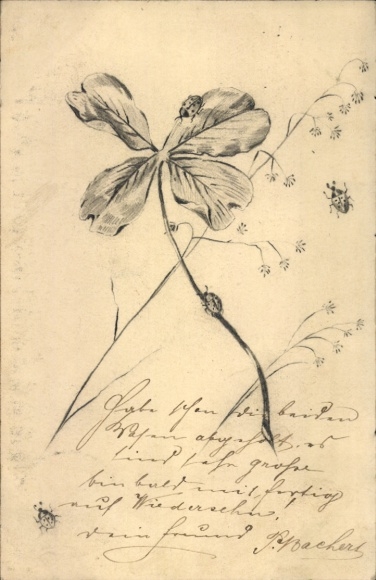 Habe schon die beiden
abgeholt, es
sind sehr große
bin bald mit fertig
auf Wiedersehn,
dein Freund P. Bachert